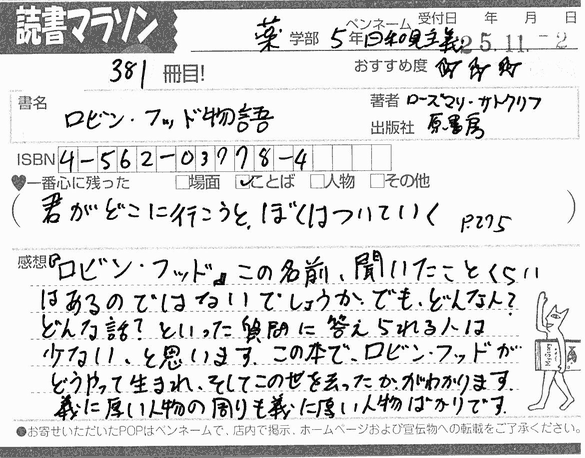 読書マラソン
ペンネーム 受付日 年 月 日
薬 学部 5年 日和見主義 25.11.-2
381 冊目!
おすすめ度
書名 ロビン・フッド物語
著者 ローズマリ・サトクリフ
出版社 原書房
ISBN 4-562-03778-4
♥一番心に残った □場面 ☑ことば □人物 □その他
(君がどこに行こうと、ぼくはついていく P.275)
感想 『ロビン・フッド』この名前、聞いたことくらい
はあるのではないでしょうか。でも、どんな人?
どんな話?といった質問に答えられる人は
少ない、と思います。この本で、ロビン・フッドが
どうやって生まれ、そしてこの世を去ったか、がわかります。
義に厚い人物の周りも義に厚い人物ばかりです。
●お寄せいただいたPOPはペンネームで、店内で掲示、ホームページおよび宣伝物への転載をご了承ください。